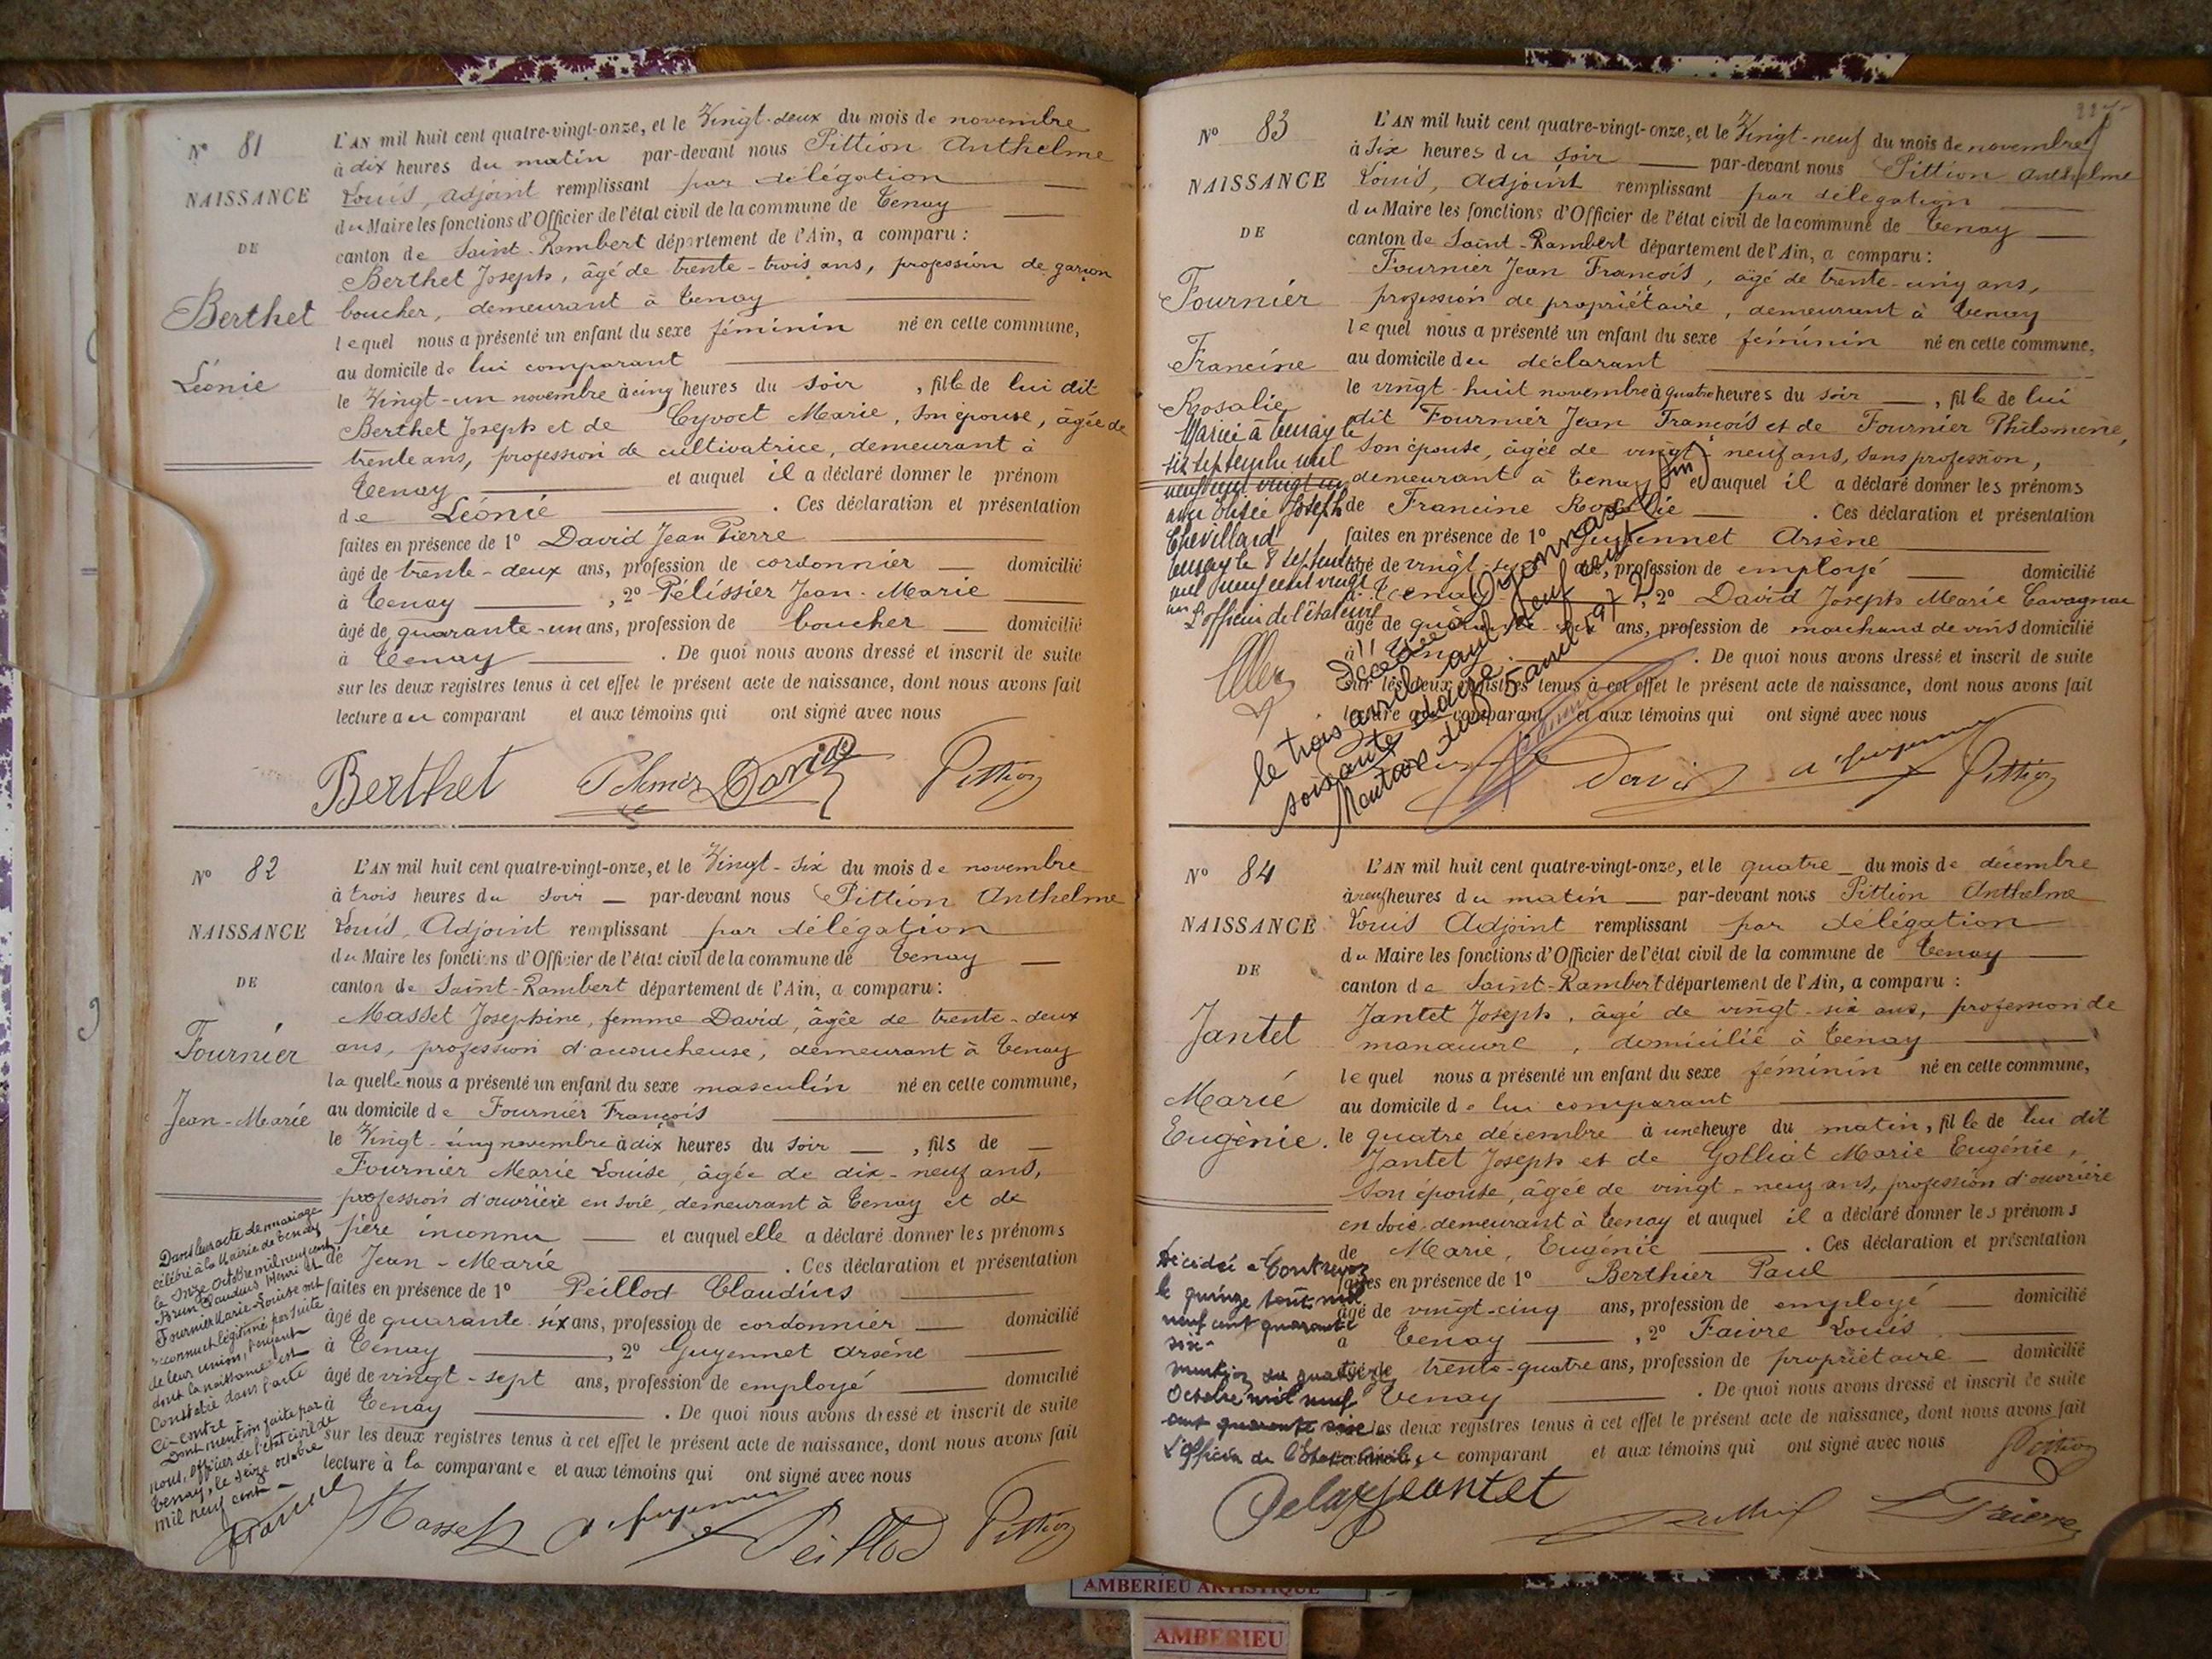 N° 81
NAISSANCE
DE
Berthet
Léonie
L'AN mil huit cent quatre-vingt-onze, et le Vingt-deux du mois de novembre
à dix heures du matin par-devant nous Pittion Anthelme
Louis, adjoint remplissant par délégation
du Maire les fonctions d'Officier de l'état civil de la commune de Tenay
canton de Saint-Rambert département de l'Ain, a comparu :
Berthet Joseph, âgé de trente-trois ans, profession de garçon
boucher, demeurant à Tenay
lequel nous a présenté un enfant du sexe féminin né en cette commune,
au domicile de lui comparant
le Vingt-un novembre à cinq heures du soir, fille de lui dit
Berthet Joseph et de Cyvoct Marie, son épouse, âgée de
trente ans, profession de cultivatrice, demeurant à
Tenay et auquel il a déclaré donner le prénom
de Léonie . Ces déclaration et présentation
faites en présence de 1° David Jean Pierre
âgé de trente-deux ans, profession de cordonnier domicilié
à Tenay , 2° Pélissier Jean-Marie
âgé de quarante-un ans, profession de boucher domicilié
à Tenay . De quoi nous avons dressé et inscrit de suite
sur les deux registres tenus à cet effet le présent acte de naissance, dont nous avons fait
lecture au comparant et aux témoins qui ont signé avec nous
Berthet David Pittion
N° 82
NAISSANCE
DE
Fournier
Jean-Marie
L'AN mil huit cent quatre-vingt-onze, et le Vingt-six du mois de novembre
à trois heures du soir par-devant nous Pittion Anthelme
Louis, Adjoint remplissant par délégation
du Maire les fonctions d'Officier de l'état civil de la commune de Tenay
canton de Saint-Rambert département de l'Ain, a comparu :
Masset Josephine, femme David, âgée de trente-deux
ans, profession d'accoucheuse, demeurant à Tenay
laquelle nous a présenté un enfant du sexe masculin né en cette commune,
au domicile de Fournier François
le Vingt-cinq novembre à dix heures du soir , fils de
Fournier Marie Louise, âgée de dix-neuf ans,
profession d'ouvrière en soie, demeurant à Tenay et de
père inconnu et auquel elle a déclaré donner les prénoms
de Jean-Marie . Ces déclaration et présentation
faites en présence de 1° Peillod Claudius
âgé de quarante-six ans, profession de cordonnier domicilié
à Tenay , 2° Guyennet Arsène
âgé de vingt-sept ans, profession de employé domicilié
à Tenay . De quoi nous avons dressé et inscrit de suite
sur les deux registres tenus à cet effet le présent acte de naissance, dont nous avons fait
lecture à la comparante et aux témoins qui ont signé avec nous
Dans leur acte de mariage
célébré à la Mairie de Tenay
le onze octobre mil neuf cent
Brun Claudius Henri et
Fournier Marie-Louise ont
reconnu et légitimé par suite
de leur union, l'enfant
dont la naissance est
constatée dans l'acte
ci-contre.
Dont mention faite par
nous, officier de l'état civil de
Tenay, le seize octobre
mil neuf cent
Masset A. Guyennet Peillod Pittion
N° 83
NAISSANCE
DE
Fournier
Francine
Rosalie
L'AN mil huit cent quatre-vingt-onze, et le Vingt-neuf du mois de novembre
à six heures du soir par-devant nous Pittion Anthelme
Louis, Adjoint remplissant par délégation
du Maire les fonctions d'Officier de l'état civil de la commune de Tenay
canton de Saint-Rambert département de l'Ain, a comparu :
Fournier Jean François, âgé de trente-cinq ans,
profession de propriétaire, demeurant à Tenay
lequel nous a présenté un enfant du sexe féminin né en cette commune,
au domicile du déclarant
le vingt-huit novembre à quatre heures du soir , fille de lui
dit Fournier Jean François et de Fournier Philomène,
son épouse, âgée de vingt-neuf ans, sans profession,
demeurant à Tenay et auquel il a déclaré donner les prénoms
de Francine Rosalie . Ces déclaration et présentation
faites en présence de 1° Guyennet Arsène
âgé de vingt-sept ans, profession de employé domicilié
à Tenay , 2° David Joseph Marie Cavagnac
âgé de quarante-six ans, profession de marchand de vins domicilié
à Tenay . De quoi nous avons dressé et inscrit de suite
sur les deux registres tenus à cet effet le présent acte de naissance, dont nous avons fait
lecture au comparant et aux témoins qui ont signé avec nous
Mariée à Tenay le
six septembre mil
neuf cent vingt un
avec Joseph
Chevillard
Tenay le 8 septembre
mil neuf cent vingt
un L'officier de l'état civil
Décédée à Oyonnax (Ain)
le trois avril mil neuf cent
soixante douze
5 avril 1972
David A. Guyennet Pittion
N° 84
NAISSANCE
DE
Jantet
Marie
Eugènie.
L'AN mil huit cent quatre-vingt-onze, et le quatre du mois de décembre
à neuf heures du matin par-devant nous Pittion Anthelme
Louis Adjoint remplissant par délégation
du Maire les fonctions d'Officier de l'état civil de la commune de Tenay
canton de Saint-Rambert département de l'Ain, a comparu :
Jantet Joseph, âgé de vingt-six ans, profession de
manœuvre, domicilié à Tenay
lequel nous a présenté un enfant du sexe féminin né en cette commune,
au domicile de lui comparant
le quatre décembre à une heure du matin, fille de lui dit
Jantet Joseph et de Golliat Marie Eugénie,
son épouse, âgée de vingt-neuf ans, profession d'ouvrière
en soie, demeurant à Tenay et auquel il a déclaré donner les prénoms
de Marie, Eugénie . Ces déclaration et présentation
faites en présence de 1° Berthier Paul
âgé de vingt-cinq ans, profession de employé domicilié
à Tenay , 2° Faivre Louis
âgé de trente-quatre ans, profession de propriétaire domicilié
Tenay . De quoi nous avons dressé et inscrit de suite
les deux registres tenus à cet effet le présent acte de naissance, dont nous avons fait
comparant et aux témoins qui ont signé avec nous
Décédée à Contrevoz
le quinze août mil
neuf cent quarante
six.
Mention du quatorze
Octobre mil neuf
cent quarante six
L'Officier de l'État civil,
Jeantet Faivre Pittion
AMBERIEU ARTISTIQUE
AMBERIEU